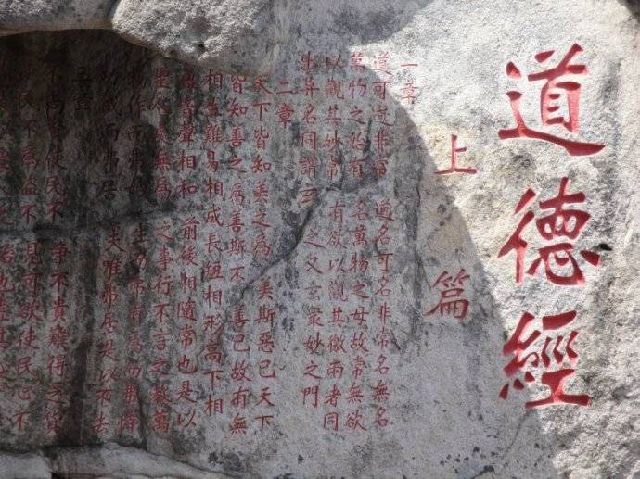 道德經
上篇
一章
道可道非常道名可名非常名無名
萬物之始有名萬物之母故常無欲
以觀其妙常有欲以觀其徼兩者同
出异名同謂玄之又玄眾妙之門
二章
天下皆知美之為美斯惡已天下
皆知善之為善斯不善已故有無
相生難易相成長短相形高下相
音聲相和前後相隨常也是以
聖人處無為之事行不言之教萬
作而弗始生而弗有為而弗恃
而弗居夫唯弗居是以不去
三章
不尚賢使民不爭不貴難得之貨
民不為盜不見可欲使民心不